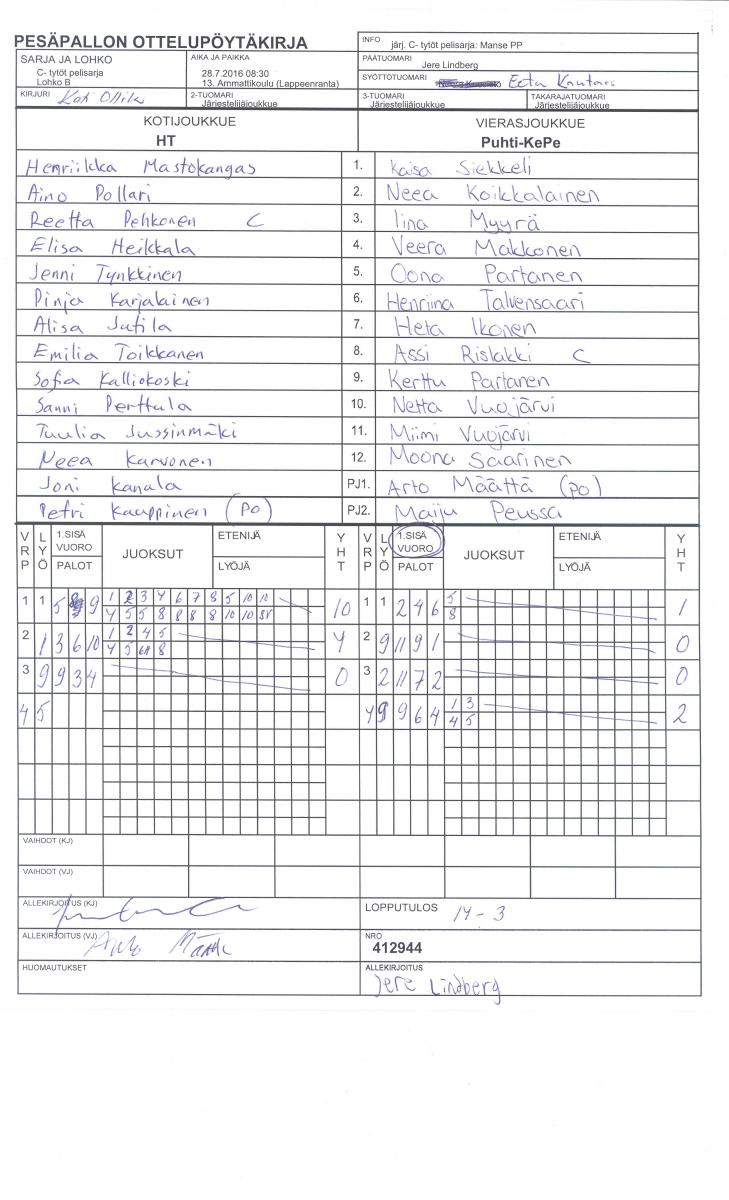 PESÄPALLON OTTELUPÖYTÄKIRJA
INFO järj. C- tytöt pelisarja: Manse PP
SARJA JA LOHKO
C- tytöt pelisarja
Lohko B
AIKA JA PAIKKA
28.7.2016 08:30
13. Ammattikoulu (Lappeenranta)
PÄÄTUOMARI
Jere Lindberg
SYÖTTÖTUOMARI Eetu
KIRJURI Kati Ollila
2-TUOMARI
Järjestelijäjoukkue
3-TUOMARI
Järjestelijäjoukkue
TAKARAJATUOMARI
Järjestelijäjoukkue
KOTIJOUKKUE VIERASJOUKKUE
HT Puhti-KePe
Henriikka Mastokangas 1. Kaisa Siekkeli
Aino Pollari 2. Neea Koikkalainen
Reetta Pehkonen C 3. Iina Myyrä
Elisa Heikkala 4. Veera Makkonen
Jenni Tynkkinen 5. Oona Partanen
Pinja Karjalainen 6. Henriina Talvensaari
Alisa Jutila 7. Heta Ikonen
Emilia Toikkanen 8. Assi Rislakki C
Sofia Kalliokoski 9. Kerttu Partanen
Sanni Perttula 10. Netta Vuojärvi
Tuulia Jussinmäki 11. Miimi Vuojärvi
Neea Karvonen 12. Moona Saarinen
Joni Kanala PJ1. Arto Määttä (PO)
Petri Kauppinen (PO) PJ2. Maiju Peussa
VRP LYÖ 1.SISÄ VUORO PALOT JUOKSUT ETENIJÄ LYÖJÄ YHT VRP LYÖ 1.SISÄ VUORO PALOT JUOKSUT ETENIJÄ LYÖJÄ YHT
1 1 5 8 9 1 2 3 4 6 7 8 5 10 12 10 1 1 2 4 6 5 1
4 5 5 8 8 8 8 10 10 8
2 1 3 6 10 1 2 4 5 4 2 9 11 9 1 0
4 5 8
3 9 9 3 4 0 3 2 11 7 2 0
4 5 4 9 9 6 4 1 3 2
4 5
VAIHDOT (KJ)
VAIHDOT (VJ)
ALLEKIRJOITUS (KJ)
LOPPUTULOS 14 - 3
ALLEKIRJOITUS (VJ) Arto Määttä
NRO
412944
HUOMAUTUKSET
ALLEKIRJOITUS
Jere Lindberg